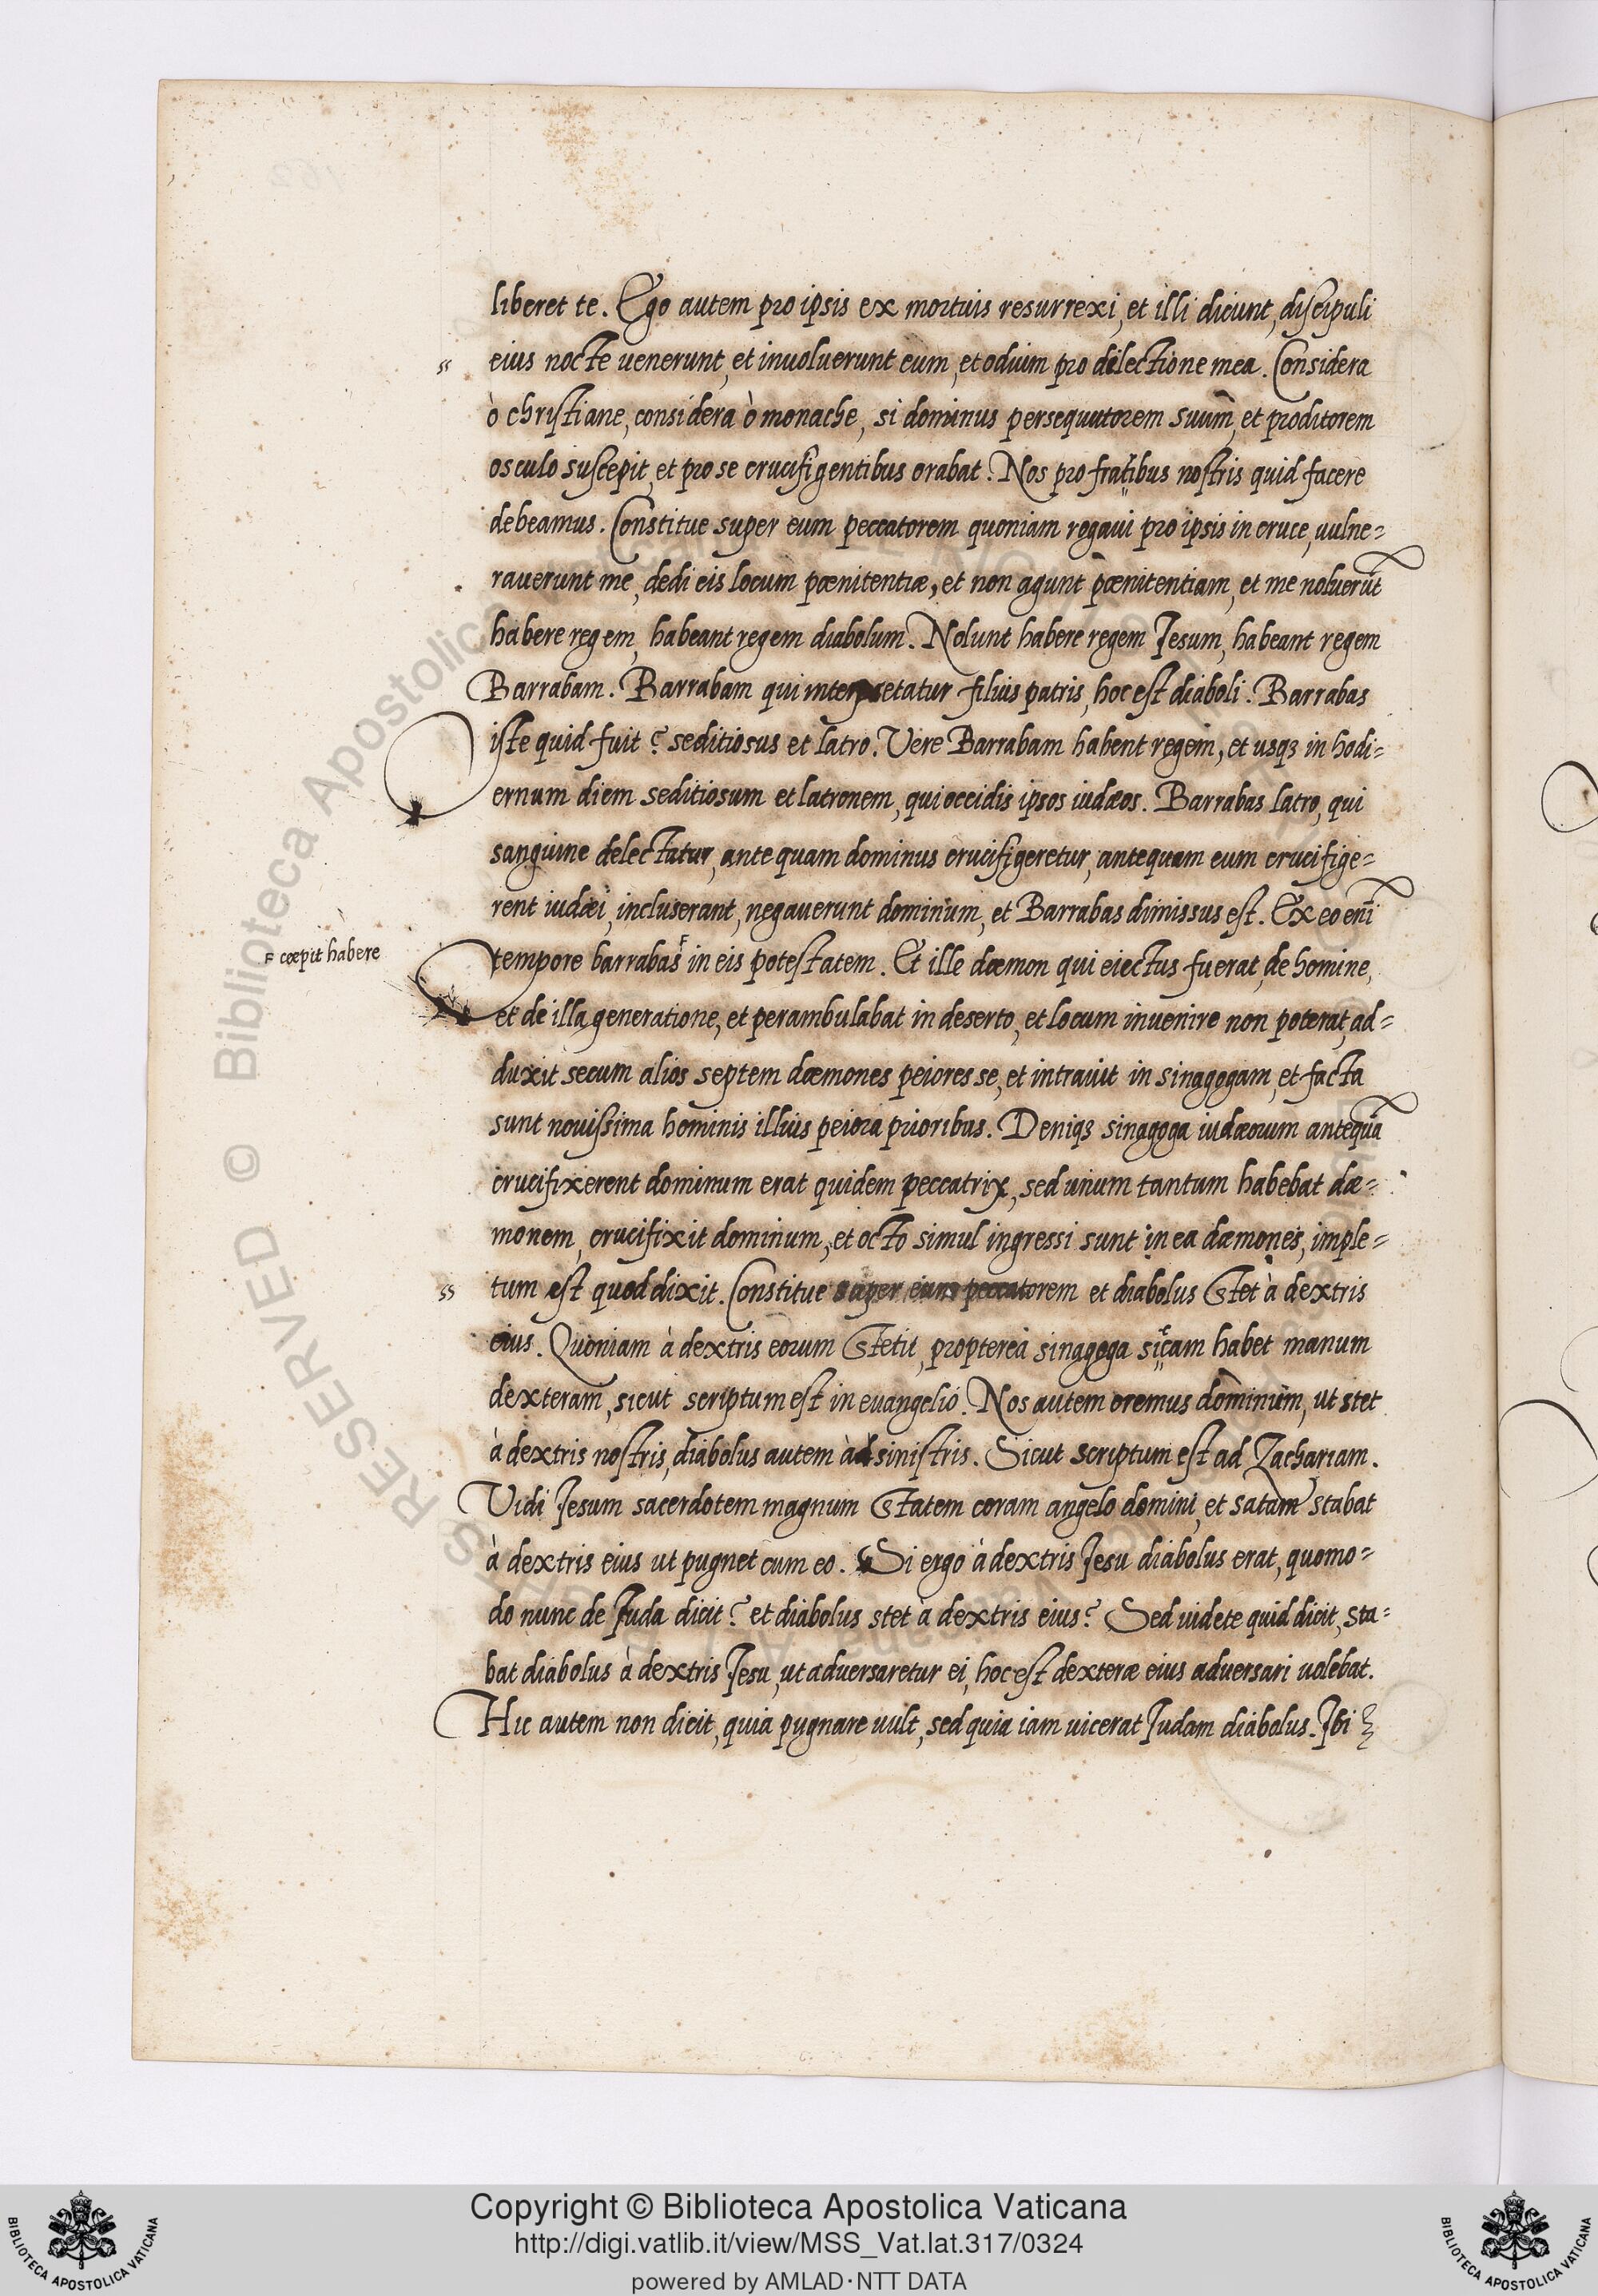 liberet te. Ego autem pro ipsis ex mortuis resurrexi, et illi dicunt, discipuli
ss eius nocte uenerunt, et inuoluerunt eum, et odium pro dilectione mea. Considera
ò christiane, considera ò monache, si dominus persequutorem suum, et proditorem
osculo suscepit, et pro se crucifigentibus orabat. Nos pro fratribus nostris quid facere
debeamus. Constitue super eum peccatorem quoniam rogaui pro ipsis in cruce, uulne=
rauerunt me, dedi eis locum pœnitentiæ, et non agunt pœnitentiam, et me noluerũt
habere regem, habeant regem diabolum. Nolunt habere regem Jesum, habeant regem
Barrabam. Barrabam qui interpretatur filius patris, hoc est diaboli. Barrabas
iste quid fuit? seditiosus et latro. Vere Barrabam habent regem, et usqꝫ in hodi=
ernum diem seditiosum et latronem, qui occidis ipsos iudæos. Barrabas latro, qui
sanguine delectatur, ante quam dominus crucifigeretur, antequam eum crucifige=
rent iudæi, incluserant, negauerunt dominum, et Barrabas dimissus est. Ex eo enĩ
F cœpit habere
tempore barrabas F in eis potestatem. Et ille dæmon qui eiectus fuerat, de homine,
et de illa generatione, et perambulabat in deserto, et locum inuenire non poterat, ad=
duxit secum alios septem dæmones peiores se, et intrauit in sinagogam, et facta
sunt nouissima hominis illius peiora prioribus. Deniqꝫ sinagoga iudæorum antequã
crucifixerent dominum erat quidem peccatrix, sed unum tantum habebat dæ=
monem, crucifixit dominum, et octo simul ingressi sunt in ea dæmones, imple=
ss tum est quod dixit. Constitue super eum peccatorem et diabolus Stet à dextris
eius. Quoniam à dextris eorum Stetit, propterea sinagoga siccam habet manum
dexteram, sicut scriptum est in euangelio. Nos autem oremus dominum, ut stet
à dextris nostris, diabolus autem àd sinistris. Sicut scriptum est ad Zachariam.
Vidi Jesum sacerdotem magnum Statem coram angelo domini, et satam stabat
à dextris eius ut pugnet cum eo. Si ergo à dextris Jesu diabolus erat, quomo=
do nunc de Juda dicit? et diabolus stet à dextris eius? Sed uidete quid dicit, sta=
bat diabolus à dextris Jesu, ut aduersaretur ei, hoc est dexteræ eius aduersari uolebat.
Hic autem non dicit, quia pugnare uult, sed quia iam uicerat Judam diabolus. Jbi
Copyright © Biblioteca Apostolica Vaticana
http://digi.vatlib.it/view/MSS_Vat.lat.317/0324
powered by AMLAD·NTT DATA
BIBLIOTECA APOSTOLICA VATICANA
BIBLIOTECA APOSTOLICA VATICANA